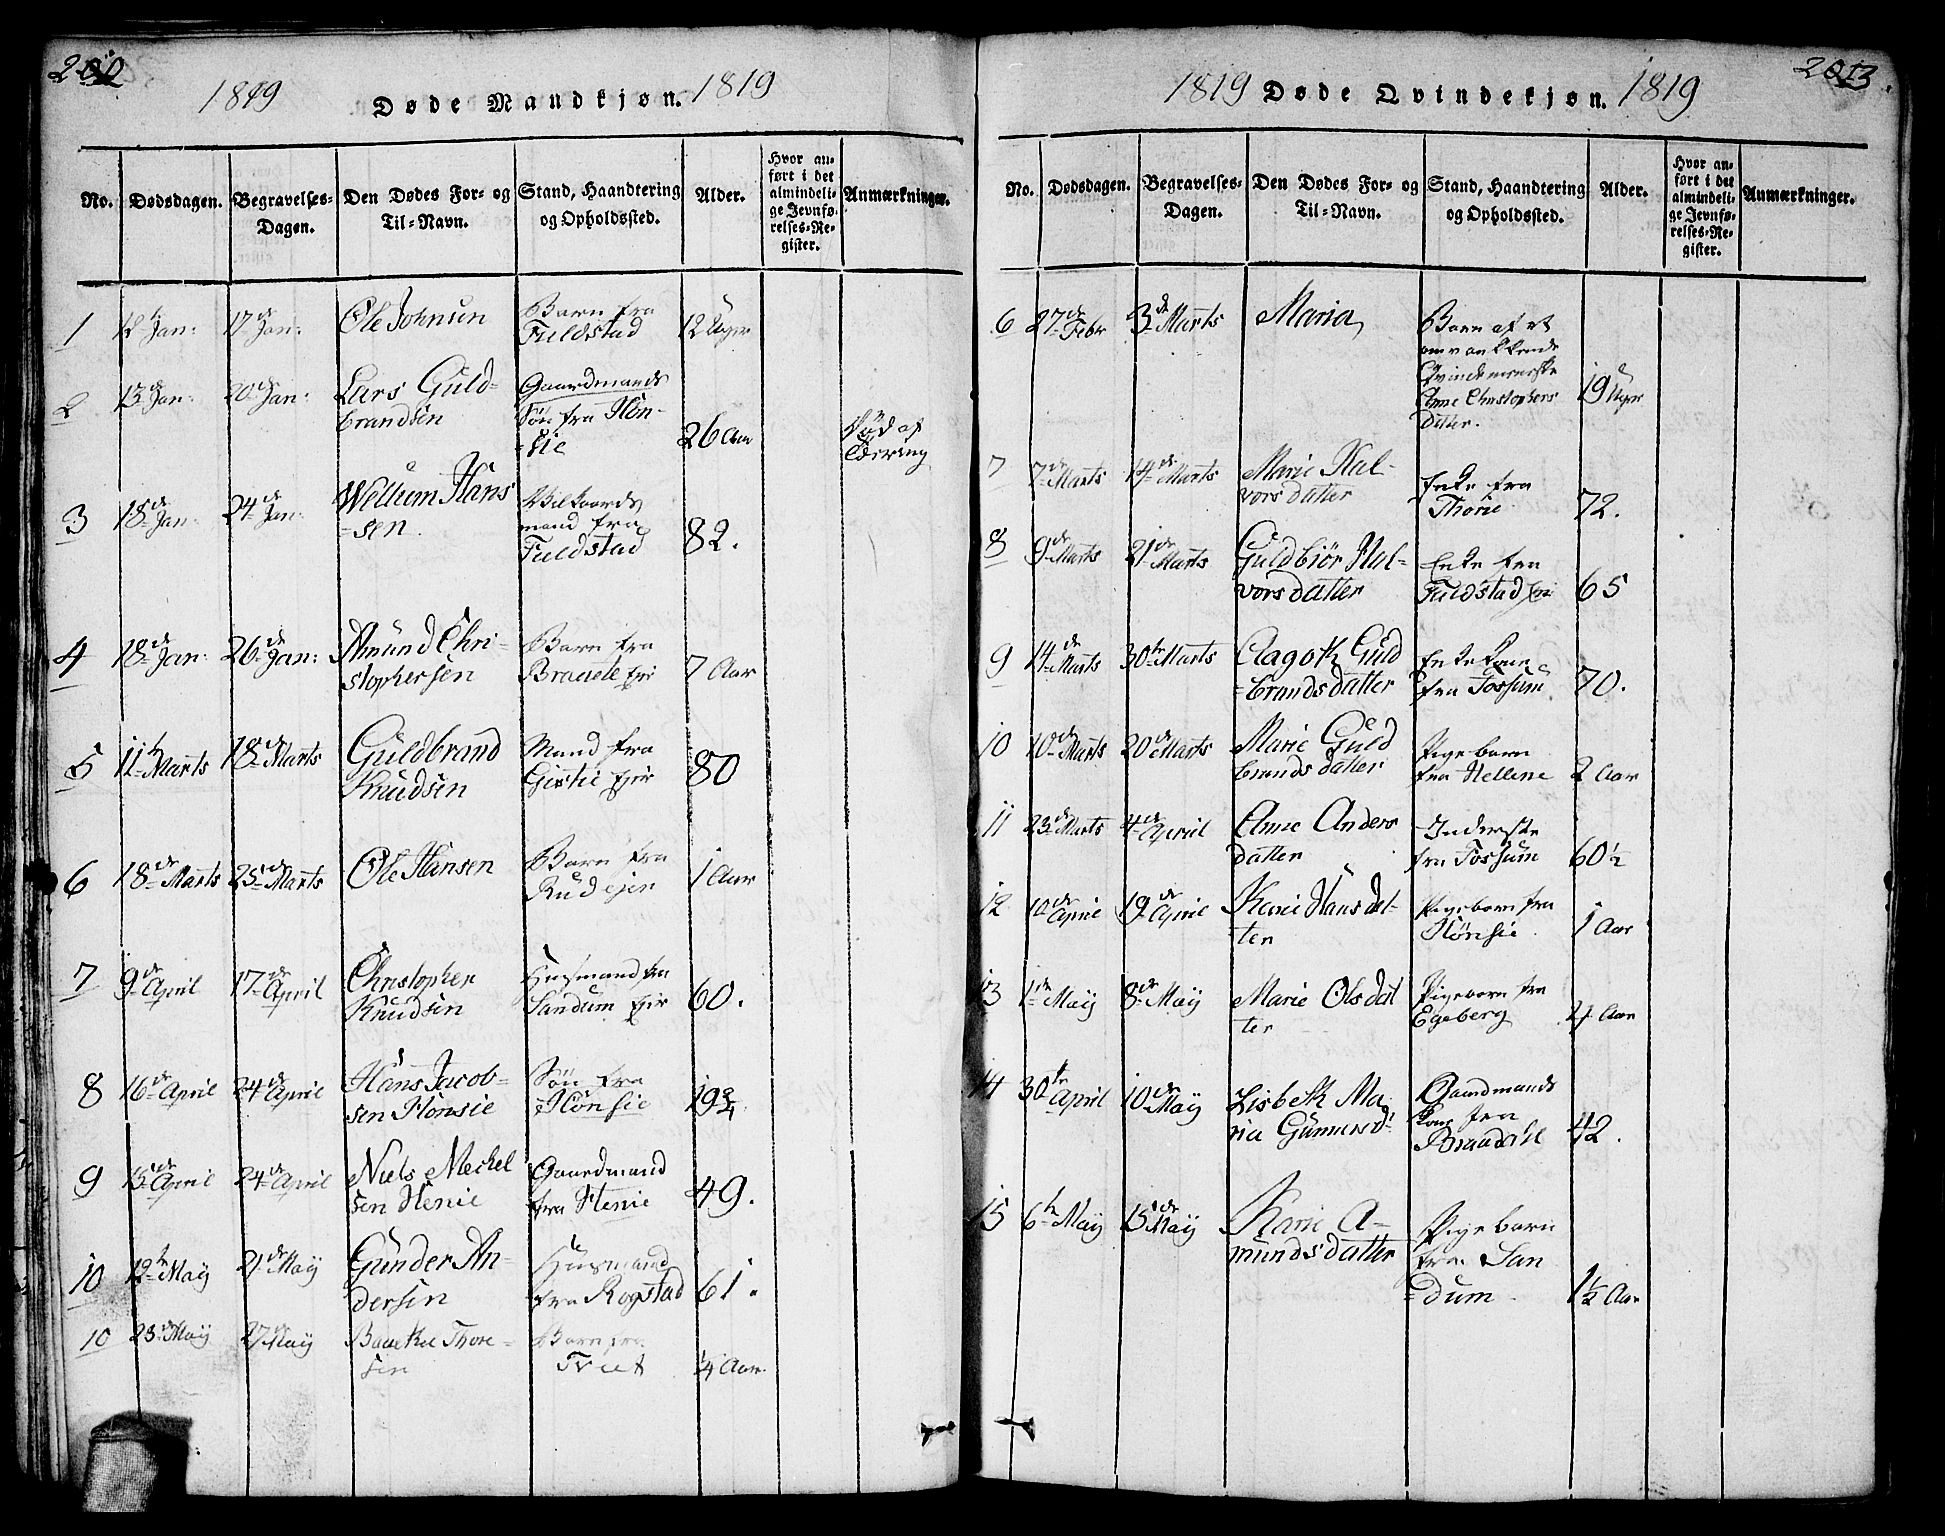 1819 Døde Mandkjøn. 1819
No. Dødsdagen. Begravelses-Dagen. Den Dødes For- og Til-Navn. Stand, Haandtering og Opholdssted. Alder. Hvor anført i det almindelige Jevnførelses-Register. Anmærkninger.
1 12te Jan: 17de Jan: Ole Johnsen Barn fra Fuldstad 12 Uger
2 13de Jan: 20de Jan: Lars Guldbrandsen Gaardmands Søn fra Hönsie 26 Aar Död af
3 18de Jan: 24de Jan: Wellum Hansen. mand fra Fuldstad 82.
4 18de Jan: 26de Jan: Amund Christophersen Barn fra 7 Aar
5 11te Marts 18de Marts Guldbrand Knudsen Mand fra 80
6 18de Marts 25de Marts Ole Hansen Barn fra Rud 1 Aar
7 9de April 17de April Christopher Knudsen Husmand fra Sandum 60.
8 16de April 24de April Hans Jacobsen Hönsie Søn fra Hönsie 19 3/4
9 15de April 24de April Niels Meckelsen Henie Gaardmand fra Henie 49.
10 12te Maÿ 21de Maÿ Gunder Andersen Husmand fra Rogstad 61.
10 23de Maÿ 27de Maÿ Thoresen Barn fra 1/4 Aar
1819 Døde Qvindekjøn. 1819
No. Dødsdagen. Begravelses-Dagen. Den Dødes For- og Til-Navn. Stand, Haandtering og Opholdssted. Alder. Hvor anført i det almindelige Jevnførelses-Register. Anmærkninger.
6 27de Febr 3de Marts Maria, Barn af et omvankkende Qvindemenneske Anne Christophersdatter. 19 Uger
7 7de Marts 14de Marts Marie Halvorsdatter Enke fra Thorie 72.
8 9de Marts 21de Marts Guldbiör Halvorsdatter Enke fra Fuldstad 65
9 14de Marts 30te Marts Aagoth Guldbrandsdatter Enkekone fra Fossum 70.
10 10de Marts 20de Marts Marie Guldbrandsdatter Pigebarn fra Hellene 2 Aar
11 23de Marts 4de April Anne Andersdatter Inderste fra Fossum 60 1/2
12 10de April 19de April Karie Hansdatter Pigebarn fra Hönsie 1 Aar
13 1de Maÿ 8de Maÿ Marie Olsdatter Pigebarn fra Egeberg Aar
14 30te April 10de Maÿ Lisbeth Maria Gunnersd: Gaardmands Kone fra 42.
15 6te Maÿ 15de Maÿ Karie Amundsdatter Pigebarn fra Sandum 1 1/2 Aar